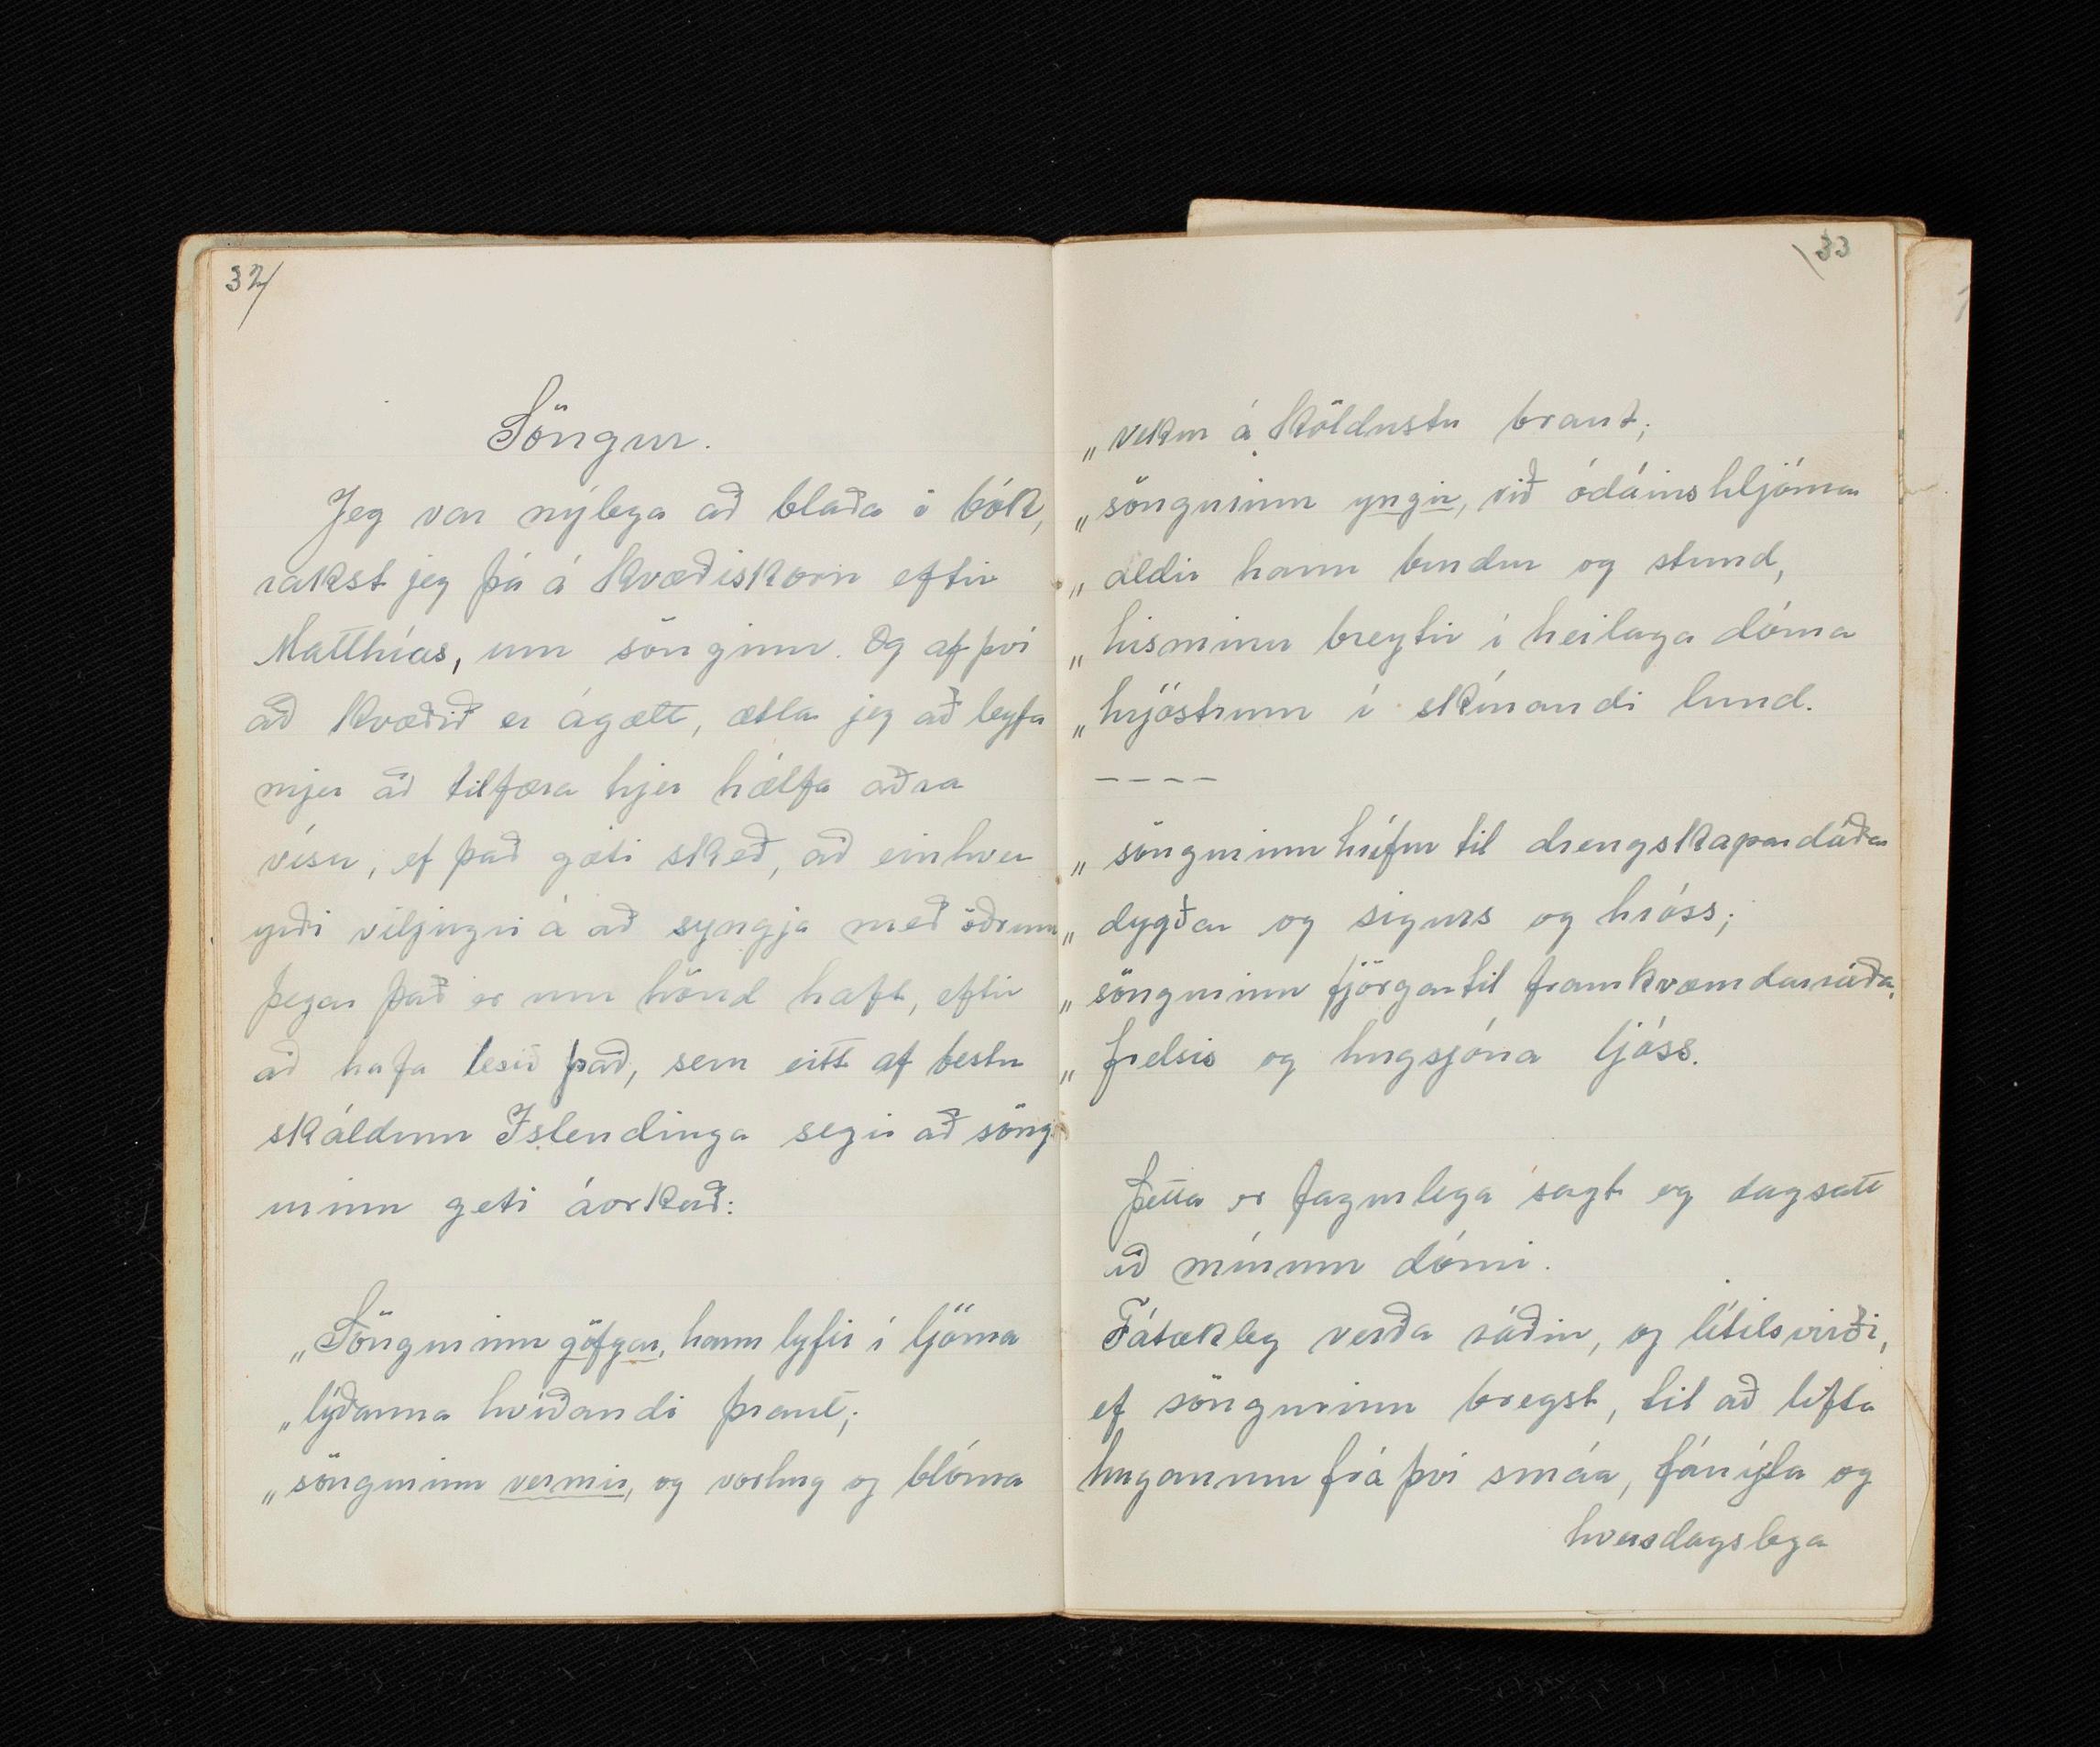 32/
Söngur.
Jeg var nýlega að blaða í bók,
rakst jeg þá á kvæðiskorn eftir
Matthías, um sönginn. Og af því
að kvæðið er ágætt, ætla jeg að leyfa
mjer að tilfæra hjer hálfa aðra
vísu, ef það gæti skeð, að einhver
yrði viljugri á að syngja með öðrum
þegar það er um hönd haft, eftir
að hafa lesið það, sem eitt af bestu
skáldum Islendinga segir að söng
urinn geti áorkað:
„Söngurinn göfgar, hann lyftir í ljóma
„lýðanna kvíðandi þraut;
„söngurinn vermir, og vorhug og blóma
\33
„vekur á köldustu braut;
„söngurinn yngir, við ódáinshljóma
„aldir hann bindur og stund,
„hisminu breytir í heilaga dóma
„hrjóstrum í skínandi lund.
----
„söngurinn hrífur til drengskapardáða
„dygðar og sigurs og hróss;
„söngurinn fjörgar til framkvæmdarráða,
„frelsis og hugsjóna ljóss.
Þetta er fagurlega sagt og dagsatt
að mínum dómi.
Fátækleg verða ráðin, og lítilsvirði,
ef söngurinn bregst, til að lifta
huganum frá því smáa, fánýta og
hversdagslega